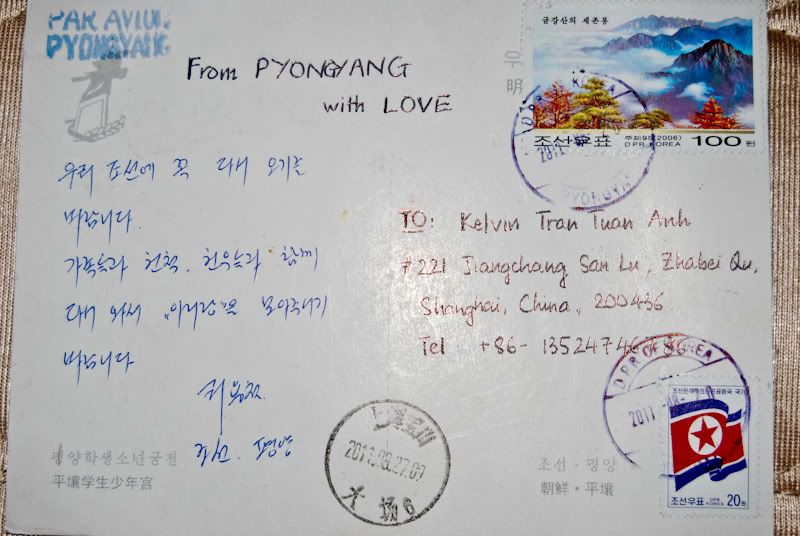 PAR AVION
PYONGYANG
From PYONGYANG
with LOVE
금강산의 세존봉
조선우표
주체95(2006)
DPR KOREA
100원
DPR KOREA
PYONGYANG
우리 조선에 꼭 다시 오기를
바랍니다.
가족들과 친척, 친우들과 함께
다시 와서 "아리랑"을 보아주시기
바랍니다
조선. 평양
TO: Kelvin Tran Tuan Anh
#221 Jiangchang San Lu, Zhabei Qu,
Shanghai, China, 200436
Tel: +86-13524746786
DPR OF KOREA
조선민주주의인민공화국 국기
조선우표 DPR KOREA 20원
2011.08.27.09
大场6
평양학생소년궁전
平壤学生少年宫
조선·평양
朝鲜·平壤